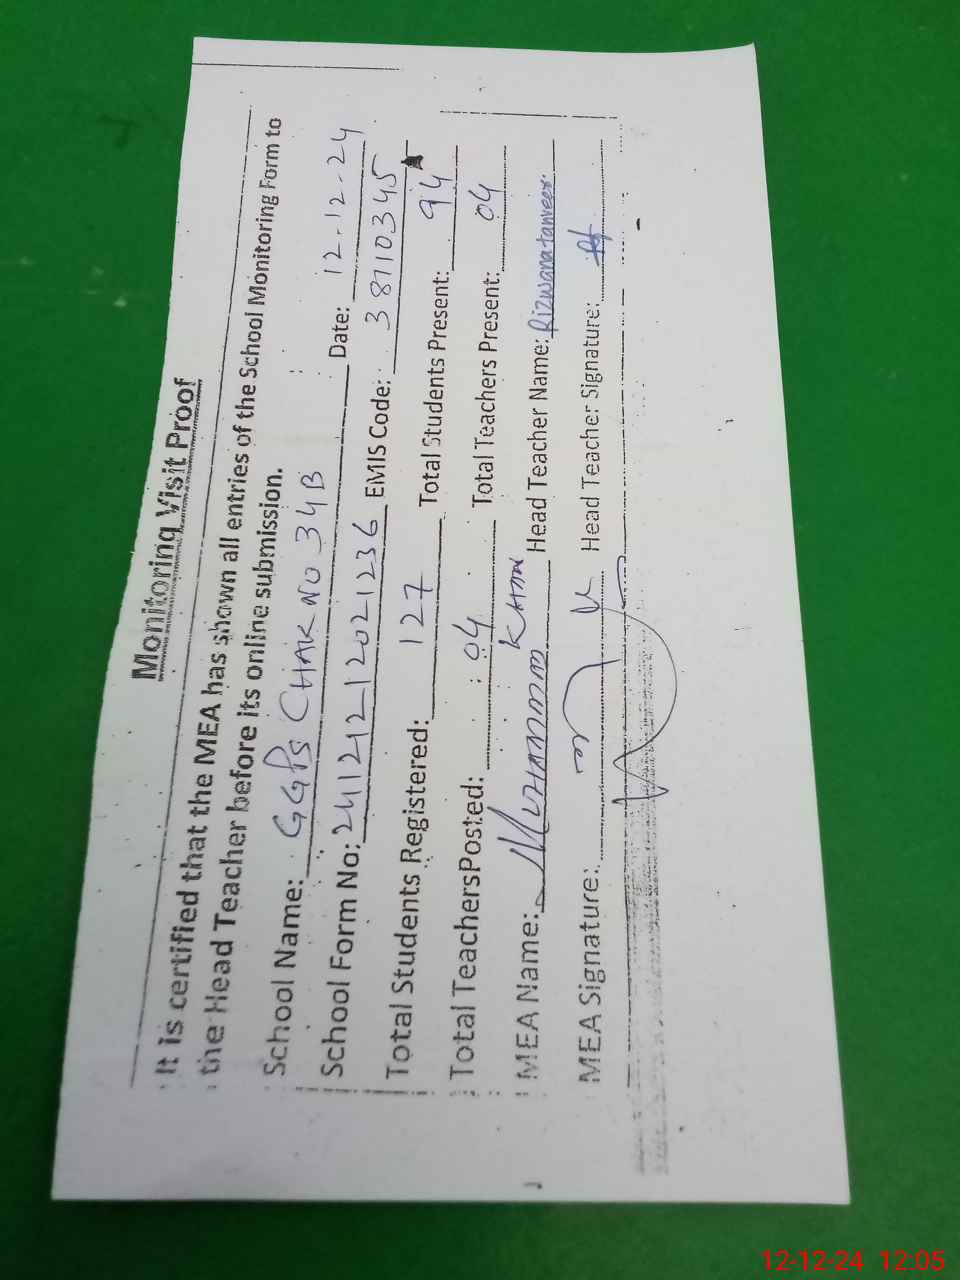 Monitoring Visit Proof
It is certified that the MEA has shown all entries of the School Monitoring Form to
the Head Teacher before its online submission.
School Name: GGPS CHAK NO 34B Date: 12-12-24
School Form No: 24121212021236 EMIS Code: 38110345
Total Students Registered: 127 Total Students Present: 94
Total TeachersPosted: 04 Total Teachers Present: 04
MEA Name: Muhammad Khan Head Teacher Name: Rizwana tanveer
MEA Signature: Head Teacher Signature:
12-12-24 12:05